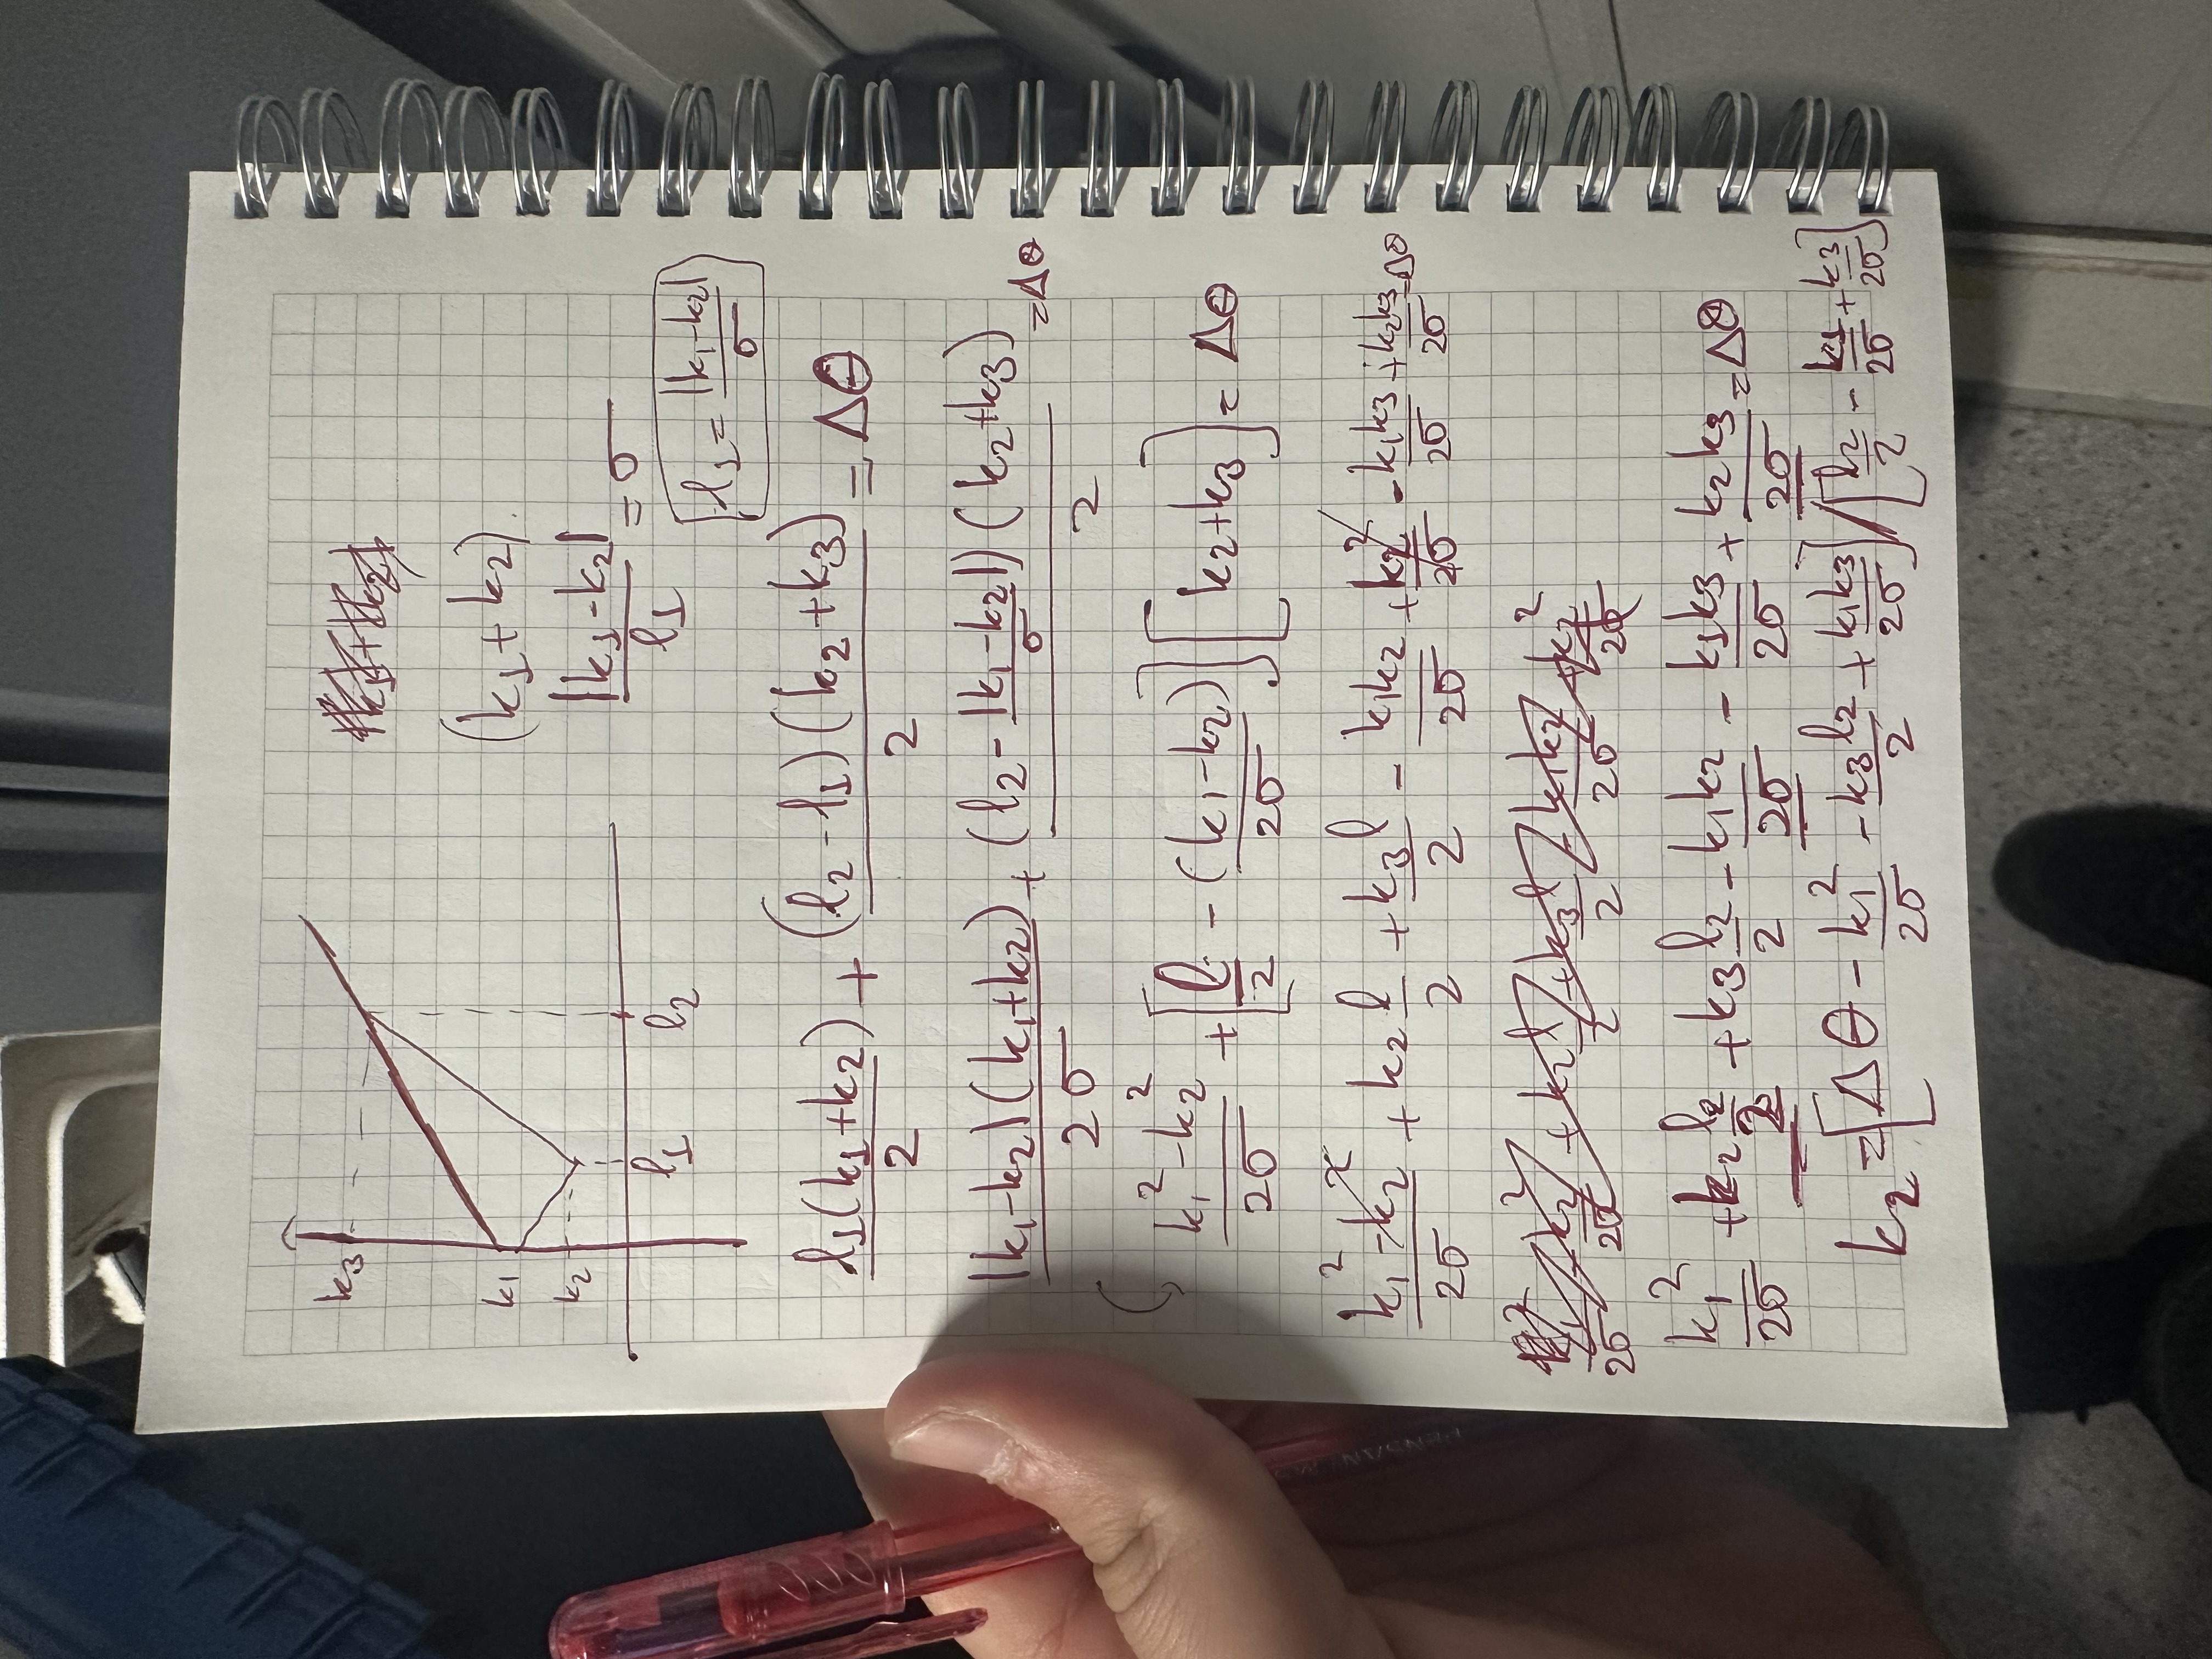 k3
k1
k2
l1 l2
(k1 + k2)
|k1 - k2| / l1 = σ
l1 = |k1 - k2| / σ
l1(k1 + k2) / 2 + (l2 - l1)(k2 + k3) / 2 = Δθ
|k1 - k2|(k1 + k2) / 2σ + (l2 - |k1 - k2| / σ)(k2 + k3) / 2 = Δθ
(k1² - k2²) / 2σ + [l/2 - (k1 - k2) / 2σ] [k2 + k3] = Δθ
(k1² - k2²) / 2σ + k2 l/2 + k3 l/2 - k1k2/2σ + k2²/2σ - k1k3/2σ + k2k3/2σ = Δθ
k1²/2σ - k2²/2σ + k2 l/2 + k3 l/2 - k1k2/2σ + k2²/2σ
k1²/2σ + k2 l2/2 + k3 l2/2 - k1k2/2σ - k1k3/2σ + k2k3/2σ = Δθ
k2 = [Δθ - k1²/2σ - k3 l2/2 + k1k3/2σ] / [l2/2 - k1/2σ + k3/2σ]